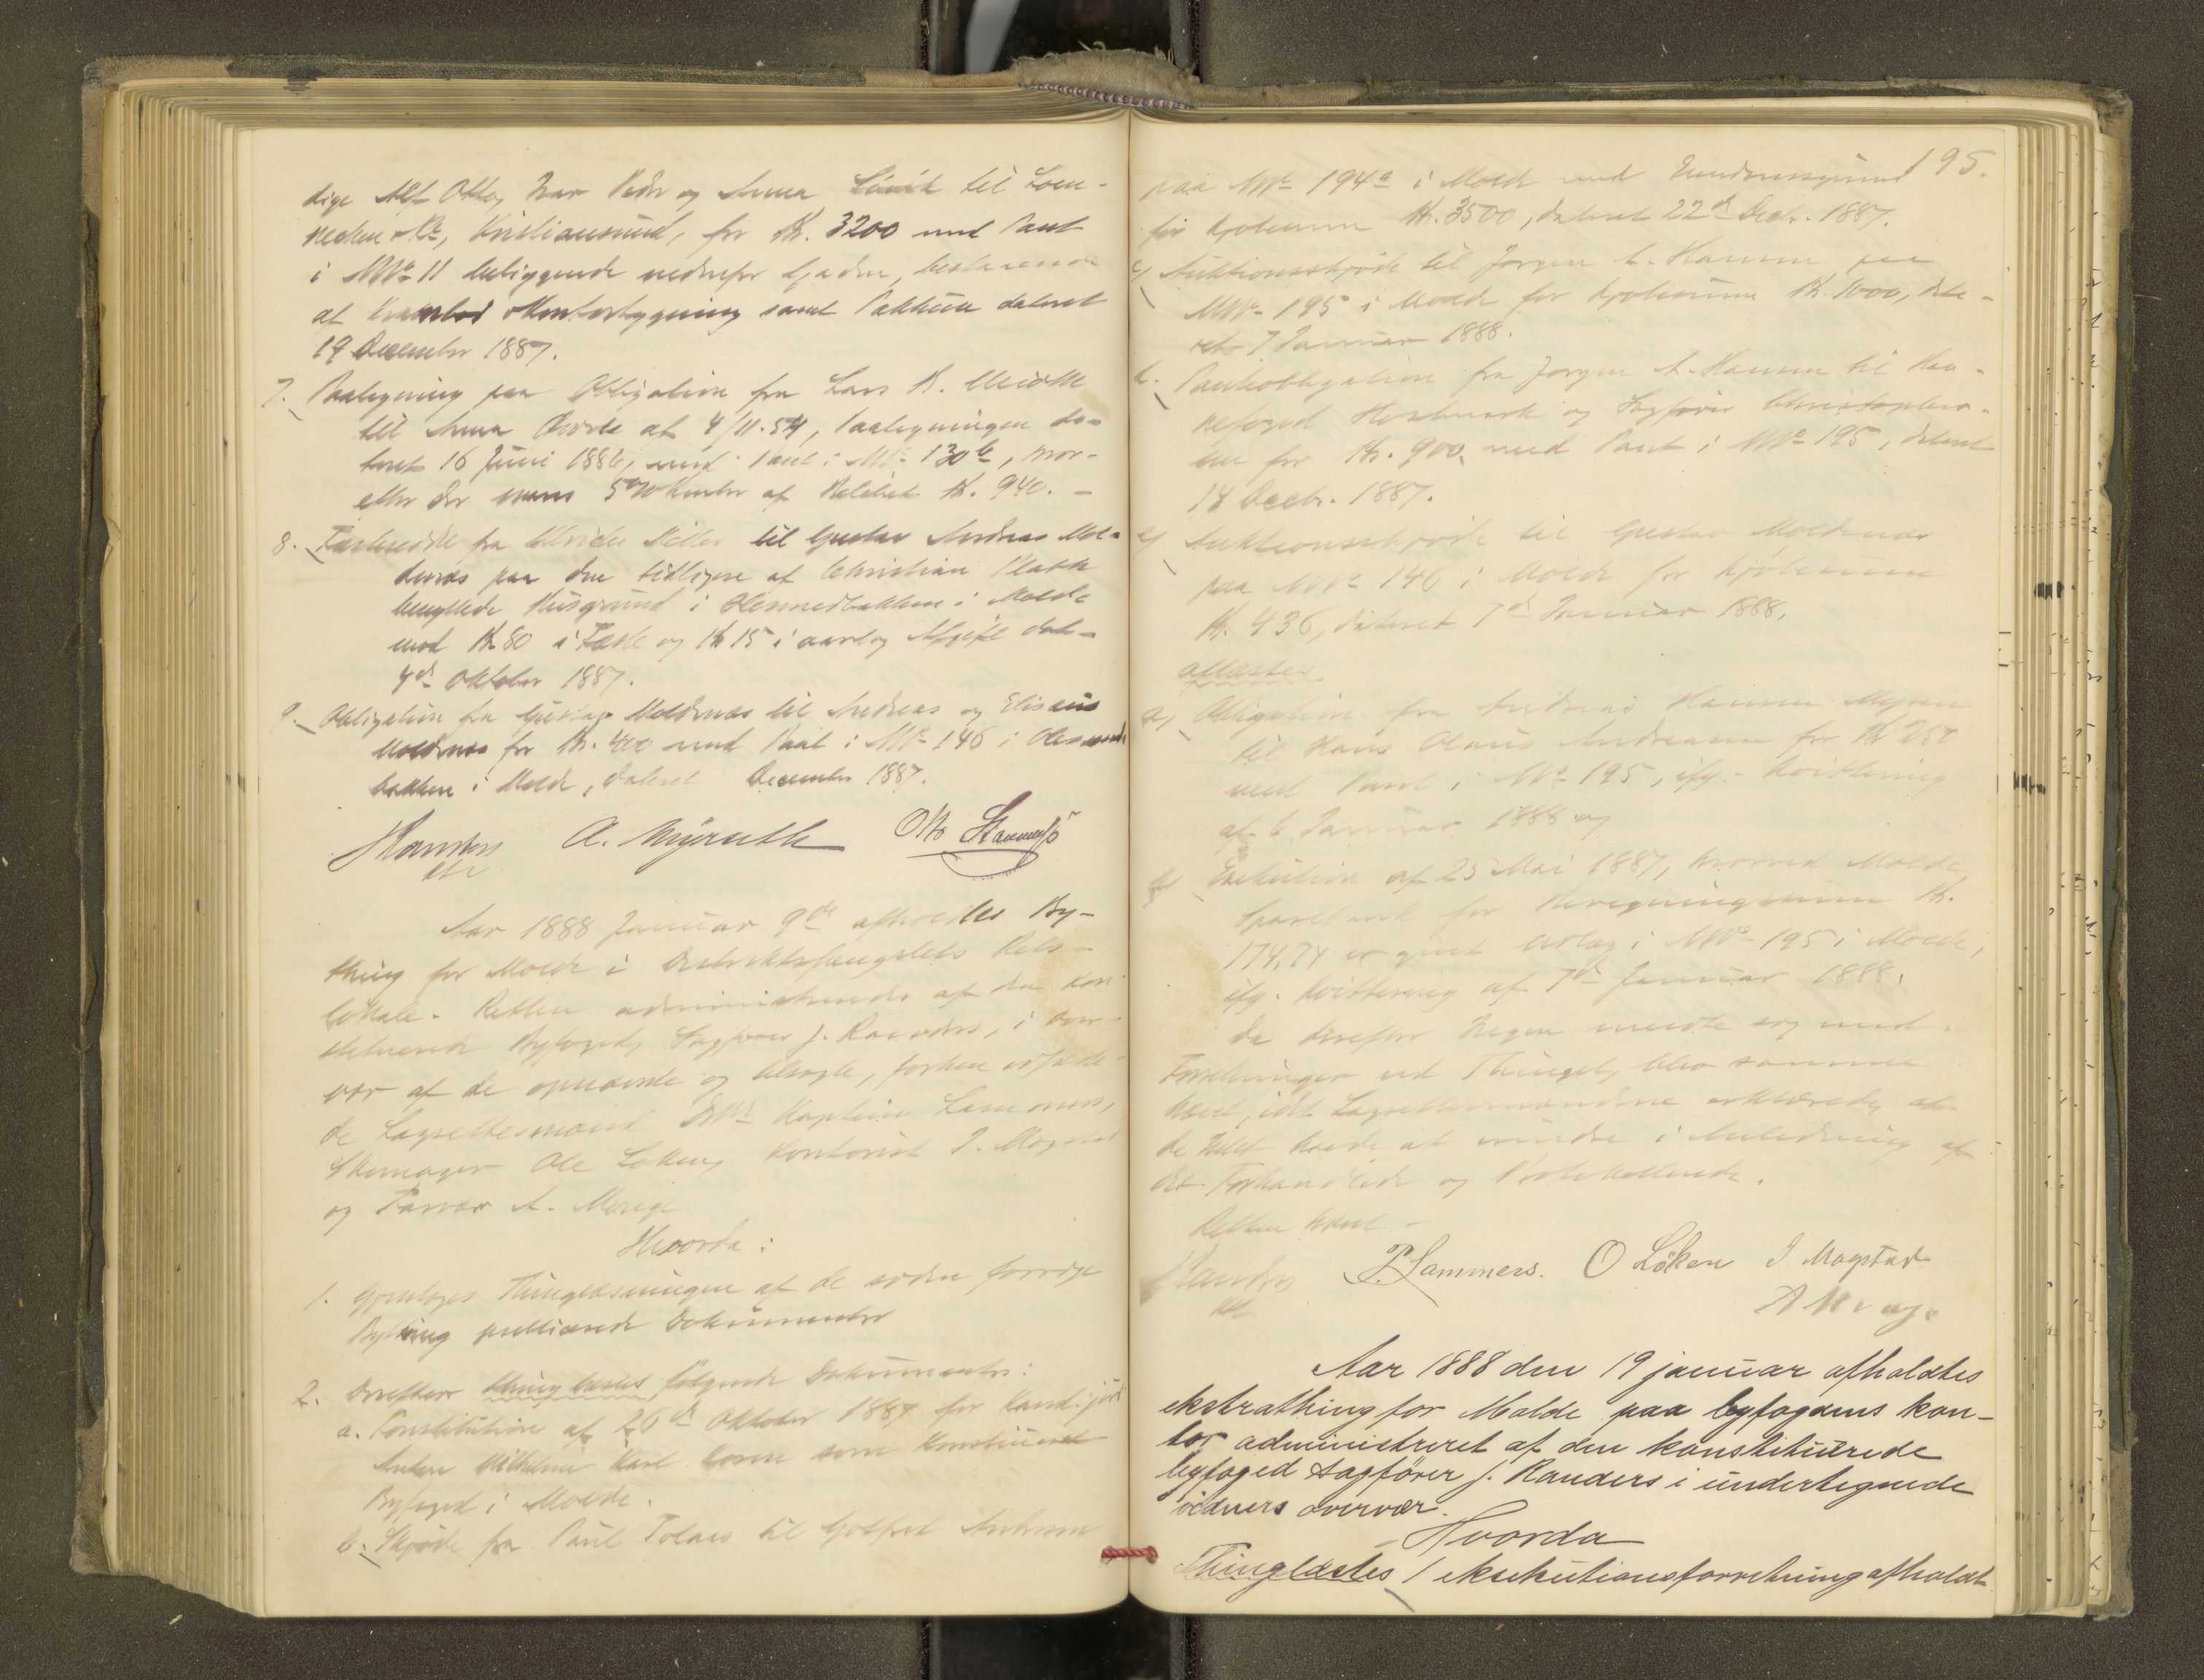 dige Alf Otto, Ivar Peder og Anna til Loen-
nechen & Co, Kristiansund, for Kr. 3200 med Pant
i MNo 11 beliggende nedenfor Gaden, bestaaende
af Krambod & Kontorbygning samt Pakhus dateret
19 December 1887.
7. Paategning paa Obligation fra Lars K.
til Anna af 4/11.54, Paategningen da-
teret 16 Juni 1886, med Pant i MNo 130b, hvor-
efter der af Kr. 940. -
8. Fæsteseddel fra til Gustav Andreas Mol-
dernæs paa den tidligere af Christian
benyttede Husgrund i i Molde
mod Kr 80 i Fæste og Kr 15 i aarlig Afgift dat-
4de Oktober 1887.
9. Obligation fra Gustav Moldernæs til Andreas og
Moldernæs for Kr. 400 med Pant i MNo 146 i
bakken i Molde, dateret December 1887.
Randers A. Myrseth Otto
Aar 1888 Januar 9de afholdtes By-
thing for Molde i Distriktsfængslets Rets-
lokale. Retten administreredes af den kon-
stituerede Byfoged, Sagfører J. Randers, i Over-
vær af de opnævnte og tilsagte, forhen edfæste-
de Laugrettesmænd DHr Kaptein Lammers,
Skomager Ole Løken, Kontorist I. Magstad
og Farver A.
Hvorda:
1. Gjentoges Thinglæsningen af de siden forrige
Bything publicerede Dokumenter
2. Derefter thinglæstes følgende Dokumenter:
a. Constitution af 26de Oktober 1887 for Kand. jur.
Anton Wilhelm Karl som Konstitueret
Byfoged i Molde.
b. Skjøde fra Paul til Gotfred
195.
paa MNo 194a i Molde med Eiendomsgrund
for Kjøbesum Kr. 3500, dateret 22de Decbr. 1887.
c) Auktionsskjøde til Jørgen A. Hansen paa
MNo 195 i Molde for Kjøbesum Kr. 1000, date-
ret 7 Januar 1888.
d. Pantobligation fra Jørgen A. Hansen til Ka-
nefoged og Sagfører Christopher-
sen for Kr. 900 med Pant i MNo 195, dateret
14 Decbr. 1887.
e) Auktionsskjøde til Gustav Moldernæs
paa MNo 146 i Molde for Kjøbesum
Kr. 436, dateret 7de Januar 1888.
aflæstes
a) Obligation fra Andreas Hansen Myren
til Hans Olaus Andreasen for Kr 250
med Pant i MNo 195, ifg. Kvittering
af 6 Januar 1888 og
b) Exekution af 25 Mai 1887, hvorved Molde
Sparebank for Kr.
174.74 er givet Udlæg i MNo 195 i Molde,
ifg. Kvittering af 7de Januar 1888.
Da derefter Ingen meldte sig med
Forretninger ved Thinget, blev samme
hævet, idet Laugrettesmændene erklærede, at
de Intet havde at erindre i Anledning af
det Forhandlede og Protokollerede.
Retten hævet -
Randers P. Lammers. O Løken I Magstad
Aar 1888 den 19 januar afholdtes
ekstrathing for Molde paa byfogdens kon-
tor administreret af den konstituerede
byfoged sagfører J. Randers i undertegnede
vidners overvær.
Hvorda
Thinglæstes 1 eksekutionsforretning afholdt